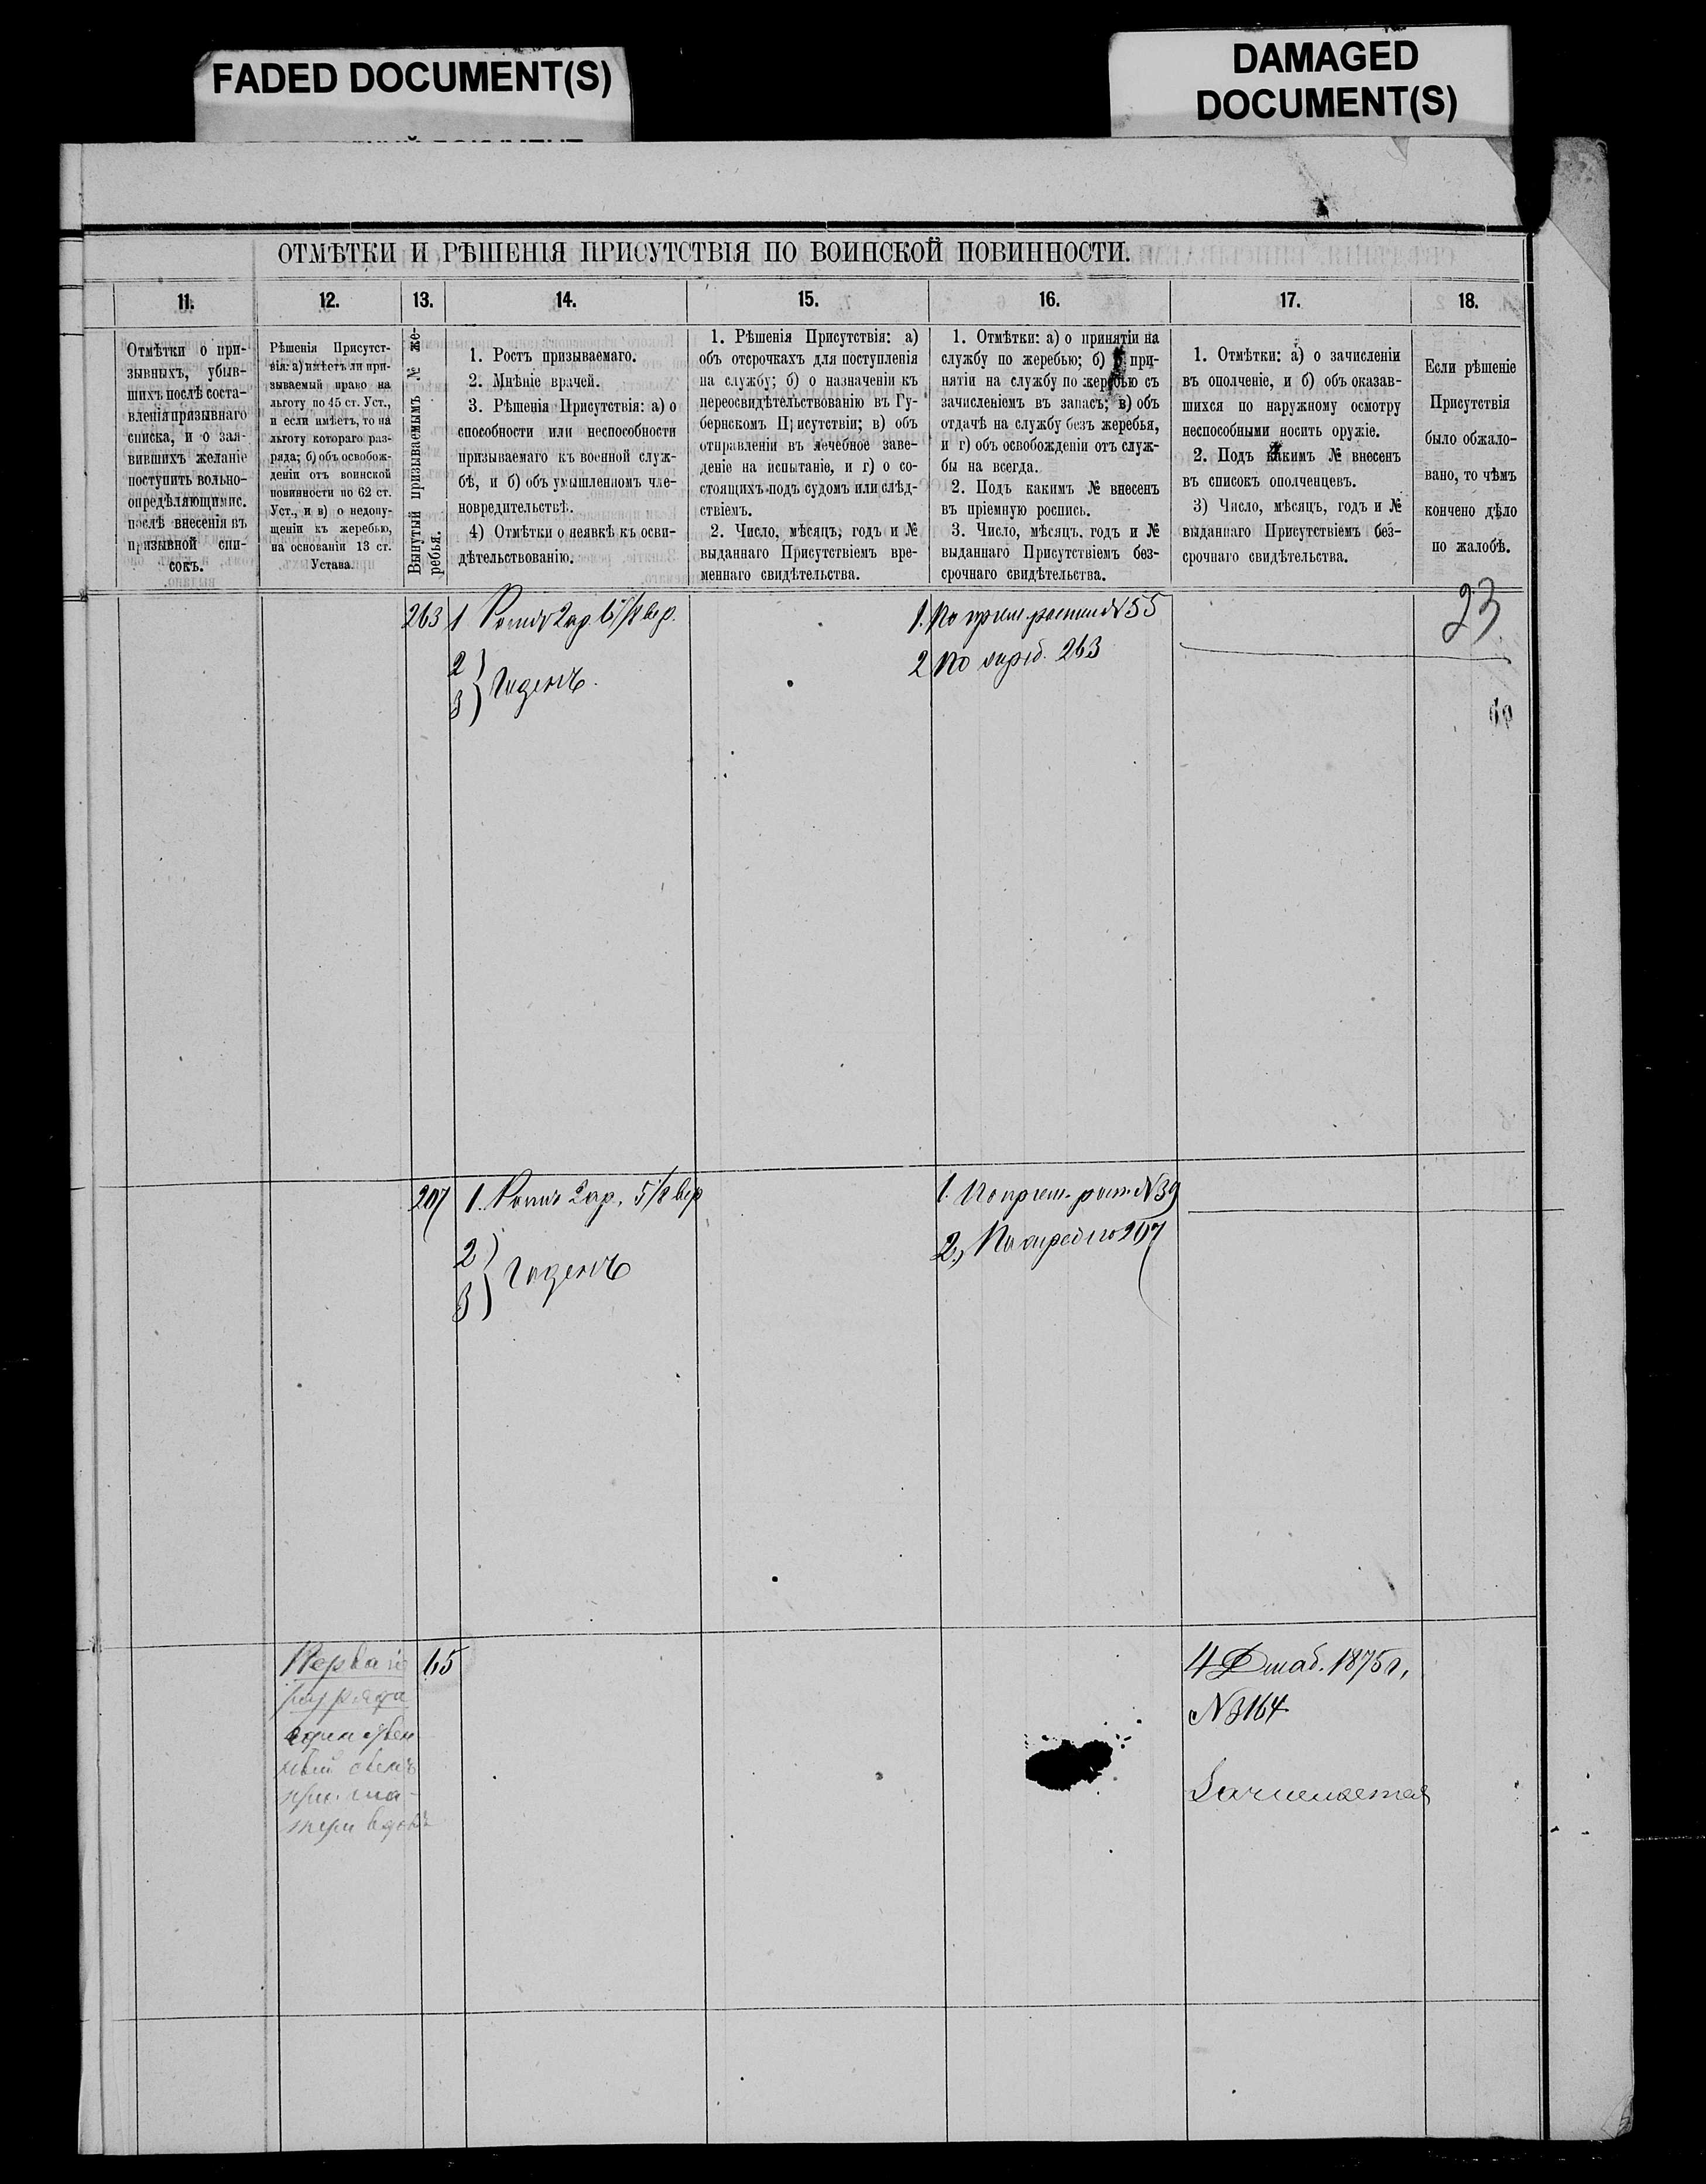 FADED DOCUMENT(S)
DAMAGED
DOCUMENT(S)
ОТМѢТКИ И РѢШЕНІЯ ПРИСУТСТВІЯ ПО ВОИНСКОЙ ПОВИННОСТИ.
11.
12.
13.
14.
15.
16.
17.
18.
Отмѣтки о при-
зывныхъ, убыв-
шихъ послѣ соста-
вленія призывнаго
списка, и о зая-
вившихъ желаніе
поступить вольно-
опредѣляющимис.
послѣ внесенія въ
призывной спи-
сокъ.
Рѣшенія Присутст-
вія: а) имѣетъ ли при-
зываемый право на
льготу по 45 ст. Уст.,
и если имѣетъ, то на
льготу котораго раз-
ряда; б) объ освобож-
деніи отъ воинской
повинности по 62 ст.
Уст., и в) о недопу-
щеніи къ жеребью,
на основаніи 13 ст.
Устава.
Вынутый призываемымъ № же-
ребья.
1. Ростъ призываемаго.
2. Мнѣніе врачей.
3. Рѣшенія Присутствія: а) о
способности или неспособности
призываемаго къ военной служ-
бѣ, и б) объ умышленномъ чле-
новредительствѣ.
4) Отмѣтки о неявкѣ къ осви-
дѣтельствованію.
1. Рѣшенія Присутствія: а)
объ отсрочкахъ для поступленія
на службу; б) о назначеніи къ
переосвидѣтельствованію въ Гу-
бернскомъ Присутствіи; в) объ
отправленіи въ лечебное заве-
деніе на испытаніе, и г) о со-
стоящихъ подъ судомъ или слѣд-
ствіемъ.
2. Число, мѣсяцъ, годъ и №
выданнаго Присутствіемъ вре-
меннаго свидѣтельства.
1. Отмѣтки: а) о принятіи на
службу по жеребью; б) о при-
нятіи на службу по жеребью съ
зачисленіемъ въ запасъ; в) объ
отдачѣ на службу безъ жеребья,
и г) объ освобожденіи отъ служ-
бы на всегда.
2. Подъ какимъ № внесенъ
въ пріемную роспись.
3. Число, мѣсяцъ, годъ и №
выданнаго Присутствіемъ без-
срочнаго свидѣтельства.
1. Отмѣтки: а) о зачисленіи
въ ополченіе, и б) объ оказав-
шихся по наружному осмотру
неспособными носить оружіе.
2. Подъ какимъ № внесенъ
въ списокъ ополченцевъ.
3) Число, мѣсяцъ, годъ и №
выданнаго Присутствіемъ без-
срочнаго свидѣтельства.
Если рѣшеніе
Присутствія
было обжало-
вано, то чѣмъ
кончено дѣло
по жалобѣ.
23
263
1 Ростъ 2 ар. 6 1/8 вер.
2
3 } Годенъ.
1. По прием. росписи № 55
2 По жереб. 263
207
1. Ростъ 2 ар. 5 1/8 вер
2
3 } Годенъ
1. По прием. росп. № 39
2, По жеребью 207
Перваго
разряда
единствен
ный сынъ
при ма-
тери вдовѣ
65
4 Декаб. 1875 г.
№ 3164
Зачисляется